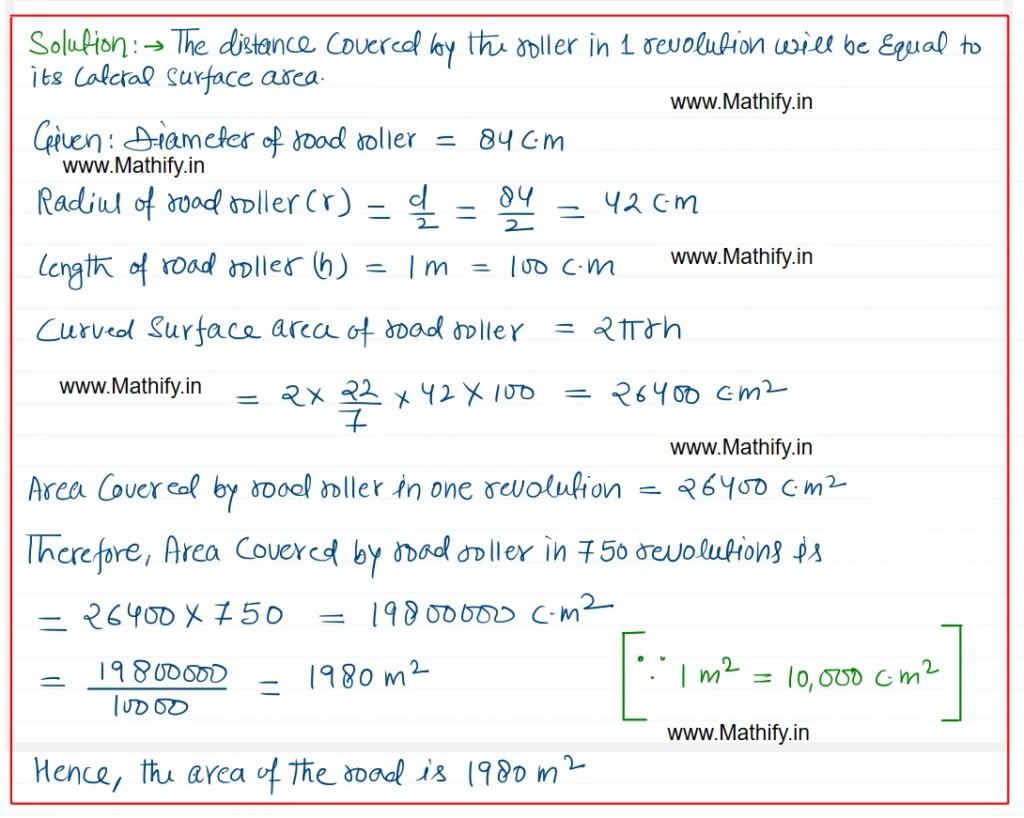 Solution:→ The distance covered by the roller in 1 revolution will be Equal to
its Lateral surface area.
www.Mathify.in
Given: Diameter of road roller = 84 c.m
www.Mathify.in
Radius of road roller (r) = d/2 = 84/2 = 42 c.m
Length of road roller (h) = 1m = 100 c.m
www.Mathify.in
Curved Surface area of road roller = 2πrh
www.Mathify.in
= 2 × 22/7 × 42 × 100 = 26400 cm²
www.Mathify.in
Area Covered by road roller in one revolution = 26400 c.m²
Therefore, Area Covered by road roller in 750 revolutions is
= 26400 × 750 = 19800000 c.m²
= 19800000/10000 = 1980 m² [∵ 1 m² = 10,000 c.m²]
www.Mathify.in
Hence, the area of the road is 1980 m²